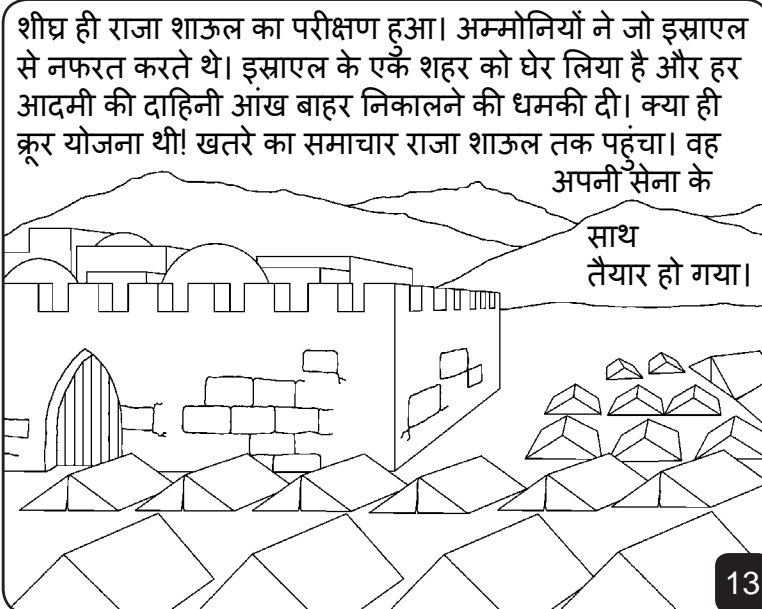 शीघ्र ही राजा शाऊल का परीक्षण हुआ। अम्मोनियों ने जो इस्राएल
से नफरत करते थे। इस्राएल के एक शहर को घेर लिया है और हर
आदमी की दाहिनी आंख बाहर निकालने की धमकी दी। क्या ही
क्रूर योजना थी! खतरे का समाचार राजा शाऊल तक पहुंचा। वह
अपनी सेना के
साथ
तैयार हो गया।
13